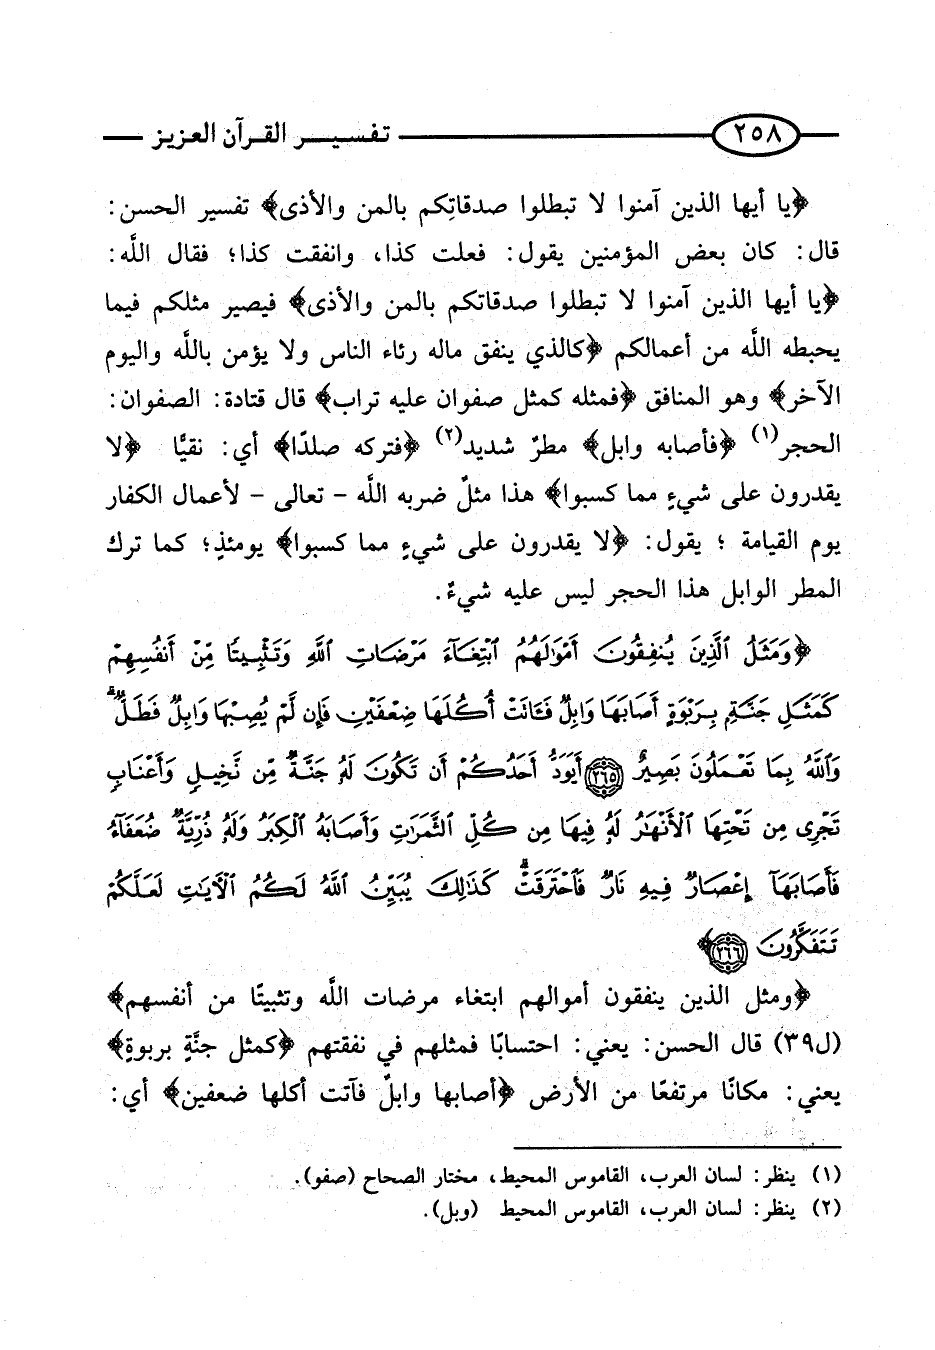 ٢٥٨ تفسير القرآن العزيز
﴿يا أيها الذين آمنوا لا تبطلوا صدقاتِكم بالمن والأذى﴾ تفسير الحسن:
قال: كان بعض المؤمنين يقول: فعلت كذا، وانفقت كذا؛ فقال اللَّه:
﴿يا أيها الذين آمنوا لا تبطلوا صدقاتكم بالمن والأذى﴾ فيصير مثلكم فيما
يحبطه اللَّه من أعمالكم ﴿كالذي ينفق ماله رئاء الناس ولا يؤمن باللَّه واليوم
الآخر﴾ وهو المنافق ﴿فمثله كمثل صفوان عليه تراب﴾ قال قتادة: الصفوان:
الحجر(١) ﴿فأصابه وابل﴾ مطرٌ شديد(٢) ﴿فتركه صلدًا﴾ أي: نقيًّا ﴿لا
يقدرون على شيءٍ مما كسبوا﴾ هذا مثلٌ ضربه اللَّه - تعالى - لأعمال الكفار
يوم القيامة ؛ يقول: ﴿لا يقدرون على شيءٍ مما كسبوا﴾ يومئذٍ؛ كما ترك
المطر الوابل هذا الحجر ليس عليه شيءٌ.
﴿وَمَثَلُ ٱلَّذِينَ يُنفِقُونَ أَمْوَٰلَهُمُ ٱبْتِغَآءَ مَرْضَاتِ ٱللَّهِ وَتَثْبِيتًا مِّنْ أَنفُسِهِمْ
كَمَثَلِ جَنَّةٍ بِرَبْوَةٍ أَصَابَهَا وَابِلٌ فَـَٔاتَتْ أُكُلَهَا ضِعْفَيْنِ فَإِن لَّمْ يُصِبْهَا وَابِلٌ فَطَلٌّ ۗ
وَٱللَّهُ بِمَا تَعْمَلُونَ بَصِيرٌ ٢٦٥ أَيَوَدُّ أَحَدُكُمْ أَن تَكُونَ لَهُۥ جَنَّةٌ مِّن نَّخِيلٍ وَأَعْنَابٍ
تَجْرِى مِن تَحْتِهَا ٱلْأَنْهَٰرُ لَهُۥ فِيهَا مِن كُلِّ ٱلثَّمَرَٰتِ وَأَصَابَهُ ٱلْكِبَرُ وَلَهُۥ ذُرِّيَّةٌ ضُعَفَآءُ
فَأَصَابَهَآ إِعْصَارٌ فِيهِ نَارٌ فَٱحْتَرَقَتْ ۗ كَذَٰلِكَ يُبَيِّنُ ٱللَّهُ لَكُمُ ٱلْءَايَٰتِ لَعَلَّكُمْ
تَتَفَكَّرُونَ ٢٦٦﴾
﴿ومثل الذين ينفقون أموالهم ابتغاء مرضات اللَّه وتثبيتًا من أنفسهم﴾
(ل٣٩) قال الحسن: يعني: احتسابًا فمثلهم في نفقتهم ﴿كمثل جنَّةٍ بربوةٍ﴾
يعني: مكانًا مرتفعًا من الأرض ﴿أصابها وابلٌ فآتت أكلها ضعفين﴾ أي:
(١) ينظر: لسان العرب، القاموس المحيط، مختار الصحاح (صفو).
(٢) ينظر: لسان العرب، القاموس المحيط (وبل).